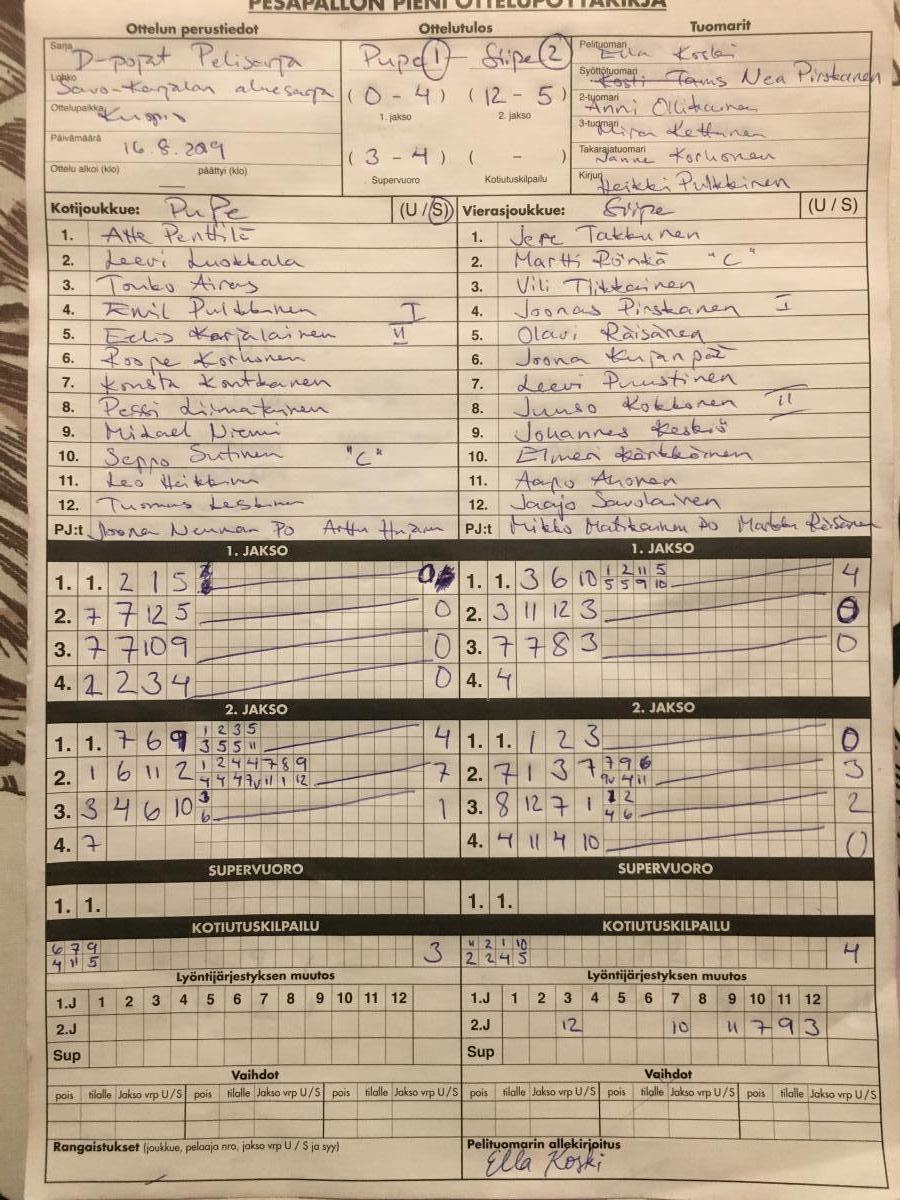 PESÄPALLON PIENI OTTELUPÖYTÄKIRJA
Ottelun perustiedot
Sarja D-pojat Pelisarja
Lohko Savo-Karjalan aluesarja
Ottelupaikka Kuopio
Päivämäärä 16.8.2019
Ottelu alkoi (klo) — päättyi (klo)
Ottelutulos
PuPe 1 - Siipe 2
( 0 - 4 ) ( 12 - 5 )
1. jakso 2. jakso
( 3 - 4 ) ( - )
Supervuoro Kotiutuskilpailu
Tuomarit
Pelituomari Ella Koski
Syöttötuomari Nea Pirskanen
2-tuomari Anni Ollikainen
3-tuomari Miira Kettunen
Takarajatuomari Janne Korhonen
Kirjuri Heikki Pulkkinen
Kotijoukkue: PuPe (U / S)
1. Atte Penttilä
2. Leevi Luokkala
3. Touko Airas
4. Emil Pulkkinen I
5. Eelis Karjalainen II
6. Roope Korhonen
7. Konsta Kontkanen
8. Pessi Liimatainen
9. Mikael Niemi
10. Seppo Sutinen "C"
11. Leo Heikkinen
12. Tuomas Leskinen
PJ:t Joona Neuman PO Arttu
Vierasjoukkue: Siipe (U / S)
1. Jere Takkunen
2. Martti Rönkä "C"
3. Vili Tiikkainen
4. Joonas Pirskanen I
5. Olavi Räisänen
6. Joona Kujanpää
7. Leevi Puustinen
8. Juuso Kokkonen II
9. Johannes Keskiö
10. Elmeri Kärkkäinen
11. Aapo Ahonen
12. Jaajo Savolainen
PJ:t Mikko Matikainen PO Markku Räisänen
1. JAKSO
1. 1. 2 1 5 0
2. 7 7 12 5 0
3. 7 7 10 9 0
4. 2 2 3 4 0
1. JAKSO
1. 1. 3 6 10 1 2 11 5 4
5 5 9 10
2. 3 11 12 3 0
3. 7 7 8 3 0
4. 4
2. JAKSO
1. 1. 7 6 9 1 2 3 5 4
3 5 5 11
2. 1 6 11 2 1 2 4 4 7 8 9 7
4 4 4 7v 11 1 12
3. 3 4 6 10 3 1
6
4. 7
2. JAKSO
1. 1. 1 2 3 0
2. 7 1 3 7 7 9 6 3
9v 4 11
3. 8 12 7 1 1 2 2
4 6
4. 4 11 4 10 0
SUPERVUORO
1. 1.
SUPERVUORO
1. 1.
KOTIUTUSKILPAILU
6 7 9 3
4 11 5
KOTIUTUSKILPAILU
11 2 1 10 4
2 2 4 5
Lyöntijärjestyksen muutos
1.J 1 2 3 4 5 6 7 8 9 10 11 12
2.J
Sup
Lyöntijärjestyksen muutos
1.J 1 2 3 4 5 6 7 8 9 10 11 12
2.J 12 10 11 7 9 3
Sup
Vaihdot
pois tilalle Jakso vrp U / S pois tilalle Jakso vrp U / S pois tilalle Jakso vrp U / S
Vaihdot
pois tilalle Jakso vrp U / S pois tilalle Jakso vrp U / S pois tilalle Jakso vrp U / S
Rangaistukset (joukkue, pelaaja nro, jakso vrp U / S ja syy)
Pelituomarin allekirjoitus
Ella Koski